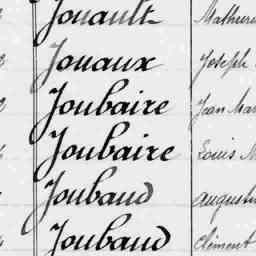 Jouault Mathurin
Jouaux Joseph
Joubaire Jean Mar
Joubaire Louis M
Joubaud Augustin
Joubaud Clément